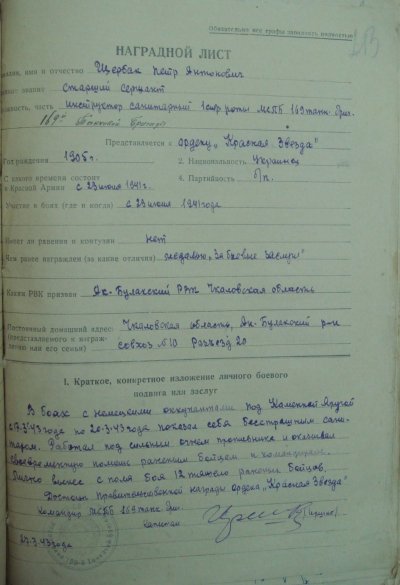 Обязательно все графы заполнять полностью
НАГРАДНОЙ ЛИСТ
имя и отчество Щербак Петр Антонович
звание старший сержант
часть инструктор санитарный 1 стр. роты МСПБ 169 танк. бриг.
169й Танковой Бригады
Представляется к ордену „Красная Звезда“
Год рождения 1905 г. 2. Национальность Украинец
С какого времени состоит
в Красной Армии с 23 июня 1941 г. 4. Партийность б/п.
Участие в боях (где и когда) с 23 июня 1941 года
Имеет ли ранения и контузии нет
Чем ранее награжден (за какие отличия) медалью „За боевые заслуги“
Каким РВК призван Ак-Булакский РВК Чкаловская область
Постоянный домашний адрес: Чкаловская область, Ак-Булакский р-н
(представляемого к награж-
дению или его семьи) совхоз №10 Разъезд 20
I. Краткое, конкретное изложение личного боевого
подвига или заслуг
В боях с немецкими оккупантами под Каменной Яругой
с 17.3.43 года по 20.3.43 года показал себя бесстрашным сани-
таром. Работал под сильным огнем противника и оказывал
своевременную помощь раненым бойцам и командирам.
Лично вынес с поля боя 12 тяжело раненых бойцов.
Достоин Правительственной награды ордена „Красная Звезда“
Командир МСПБ 169 танк. бриг.
Капитан
27.3.43 года